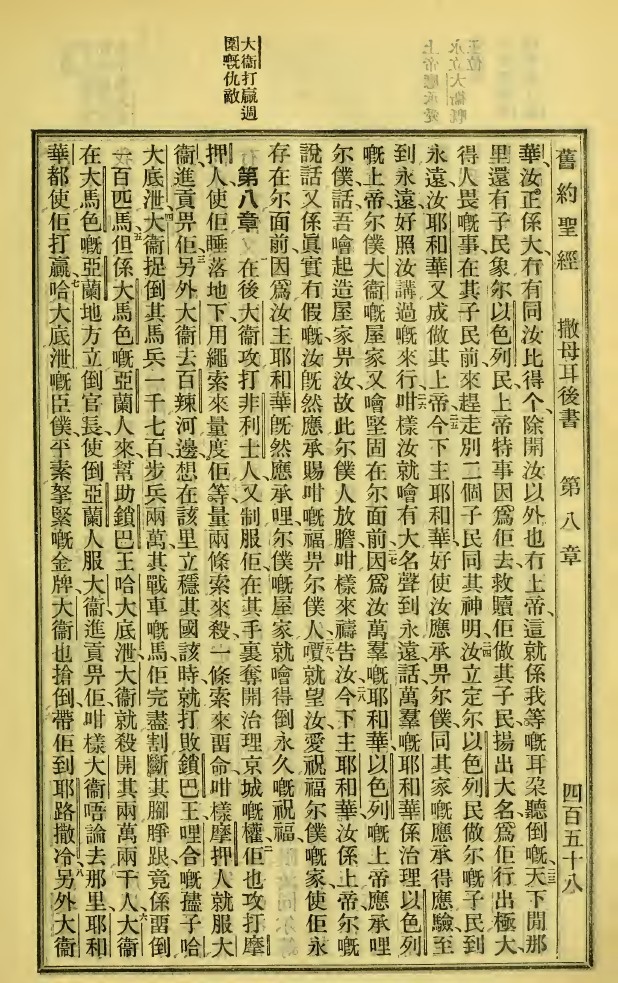 舊約聖經 撒母耳後書 第八章 四百五十八
華、汝正係大、冇有同汝比得个、除開汝以外也冇上帝、這就係我等嘅耳朶聽倒嘅、二三天下閒那
里還有子民象尔以色列民、上帝特事因爲佢去救贖佢做其子民、揚出大名、爲佢行出極大、
得人畏嘅事、在其子民前來趕走別二個子民同其神明、二四汝立定尔以色列民做尔嘅子民到
永遠、汝耶和華又成做其上帝、二五今下主耶和華、好使汝應承畀尔僕同其家嘅應承得應驗至
到永遠、好照汝講過嘅來行、二六咁樣汝就噲有大名聲到永遠、話萬羣嘅耶和華係治理以色列
嘅上帝、尔僕大衞嘅屋家又噲堅固在尔面前、二七因爲汝萬羣嘅耶和華以色列嘅上帝、應承哩
尔僕話、吾噲起造屋家畀汝、故此尔僕人放膽咁樣來禱告汝、二八今下主耶和華、汝係上帝、尔嘅
說話又係眞實冇假嘅、汝旣然應承賜咁嘅福畀尔僕人、二九嚽就望汝愛祝福尔僕嘅家、使佢永
存在尔面前、因爲汝主耶和華旣然應承哩、尔僕嘅屋家就噲得倒永久嘅祝福、
大衞打贏週
圍嘅仇敵
第八章 一在後大衞攻打非利士人、又制服佢、在其手裏奪開治理京城嘅權、二佢也攻打摩
押人、使佢睡落地下、用繩索來量度佢等、量兩條索來殺、一條索來畱命、咁樣摩押人就服大
衞、進貢畀佢、三另外大衞去百辣河邊、想在該里立穩其國、該時就打敗鎖巴王哩合嘅孻子哈
大底泄、四大衞捉倒其馬兵一千七百、步兵兩萬、其戰車嘅馬、佢完盡割斷其脚睜跟、竟係畱倒
一百匹馬、五但係大馬色嘅亞蘭人來幫助鎖巴王哈大底泄、大衞就殺開其兩萬兩千人、六大衞
在大馬色嘅亞蘭地方立倒官長、使倒亞蘭人服大衞、進貢畀佢、咁樣大衞唔論去那里、耶和
華都使佢打贏、七哈大底泄嘅臣僕、平素拏緊嘅金牌、大衞也搶倒、帶佢到耶路撒冷、八另外大衞